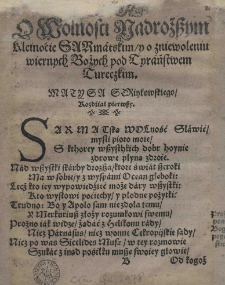 O Wolnosci Nadroższym
kleinocie SARmatckim/ y o zniewoleniu
wiernych Bożych pod Tyraństwem
Tureckim.
MATYSA
Rozdział pierwszy.
SARMATska WOLność Sławić/
myśli pioro moie/
S kthorey wszystkich dobr hoynie
zdrowe płyną zdroie.
Nad wszystki skárby drozsza/ ktore świát szeroki
Ma w sobie/ y z wyspámi Ocean głęboki:
Lecz kto iey wypowiedzieć może dáry wszytki:
Kto wystowi pociechy/ y plodne pożytki:
Trudno: Bo y Apolo sam niezdoła temu/
Y Merkuriusz złoży rozumkowi swemu/
Prożno iák widzę/ żądáć z Helikonu rády/
Nicz Párnásus/ nicz womne Cekropijskie sády/
Nicz po was Sicelides Muse/ w tey rozmowie
Szukácz inad posiłku muśzę swoiey głowie/
B Od kogoż